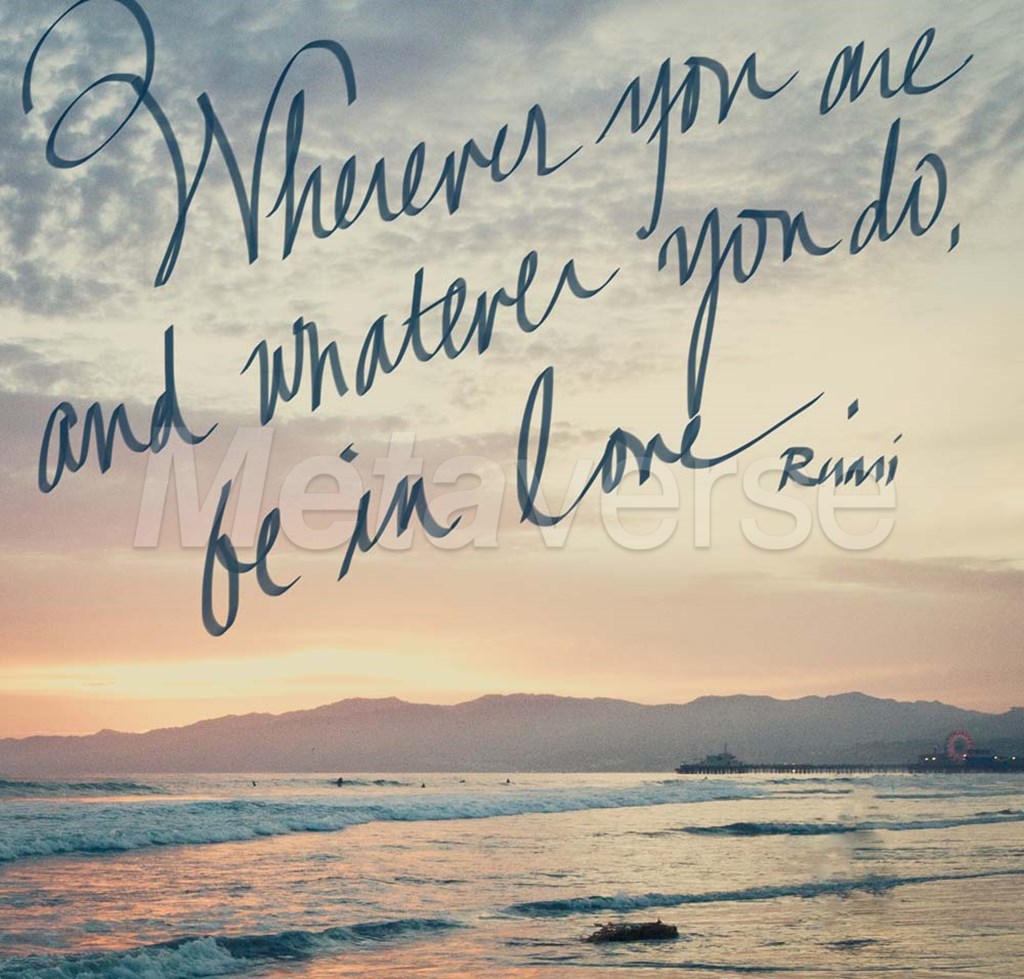 Wherever you are
and whatever you do,
be in love
Rumi
Metaverse